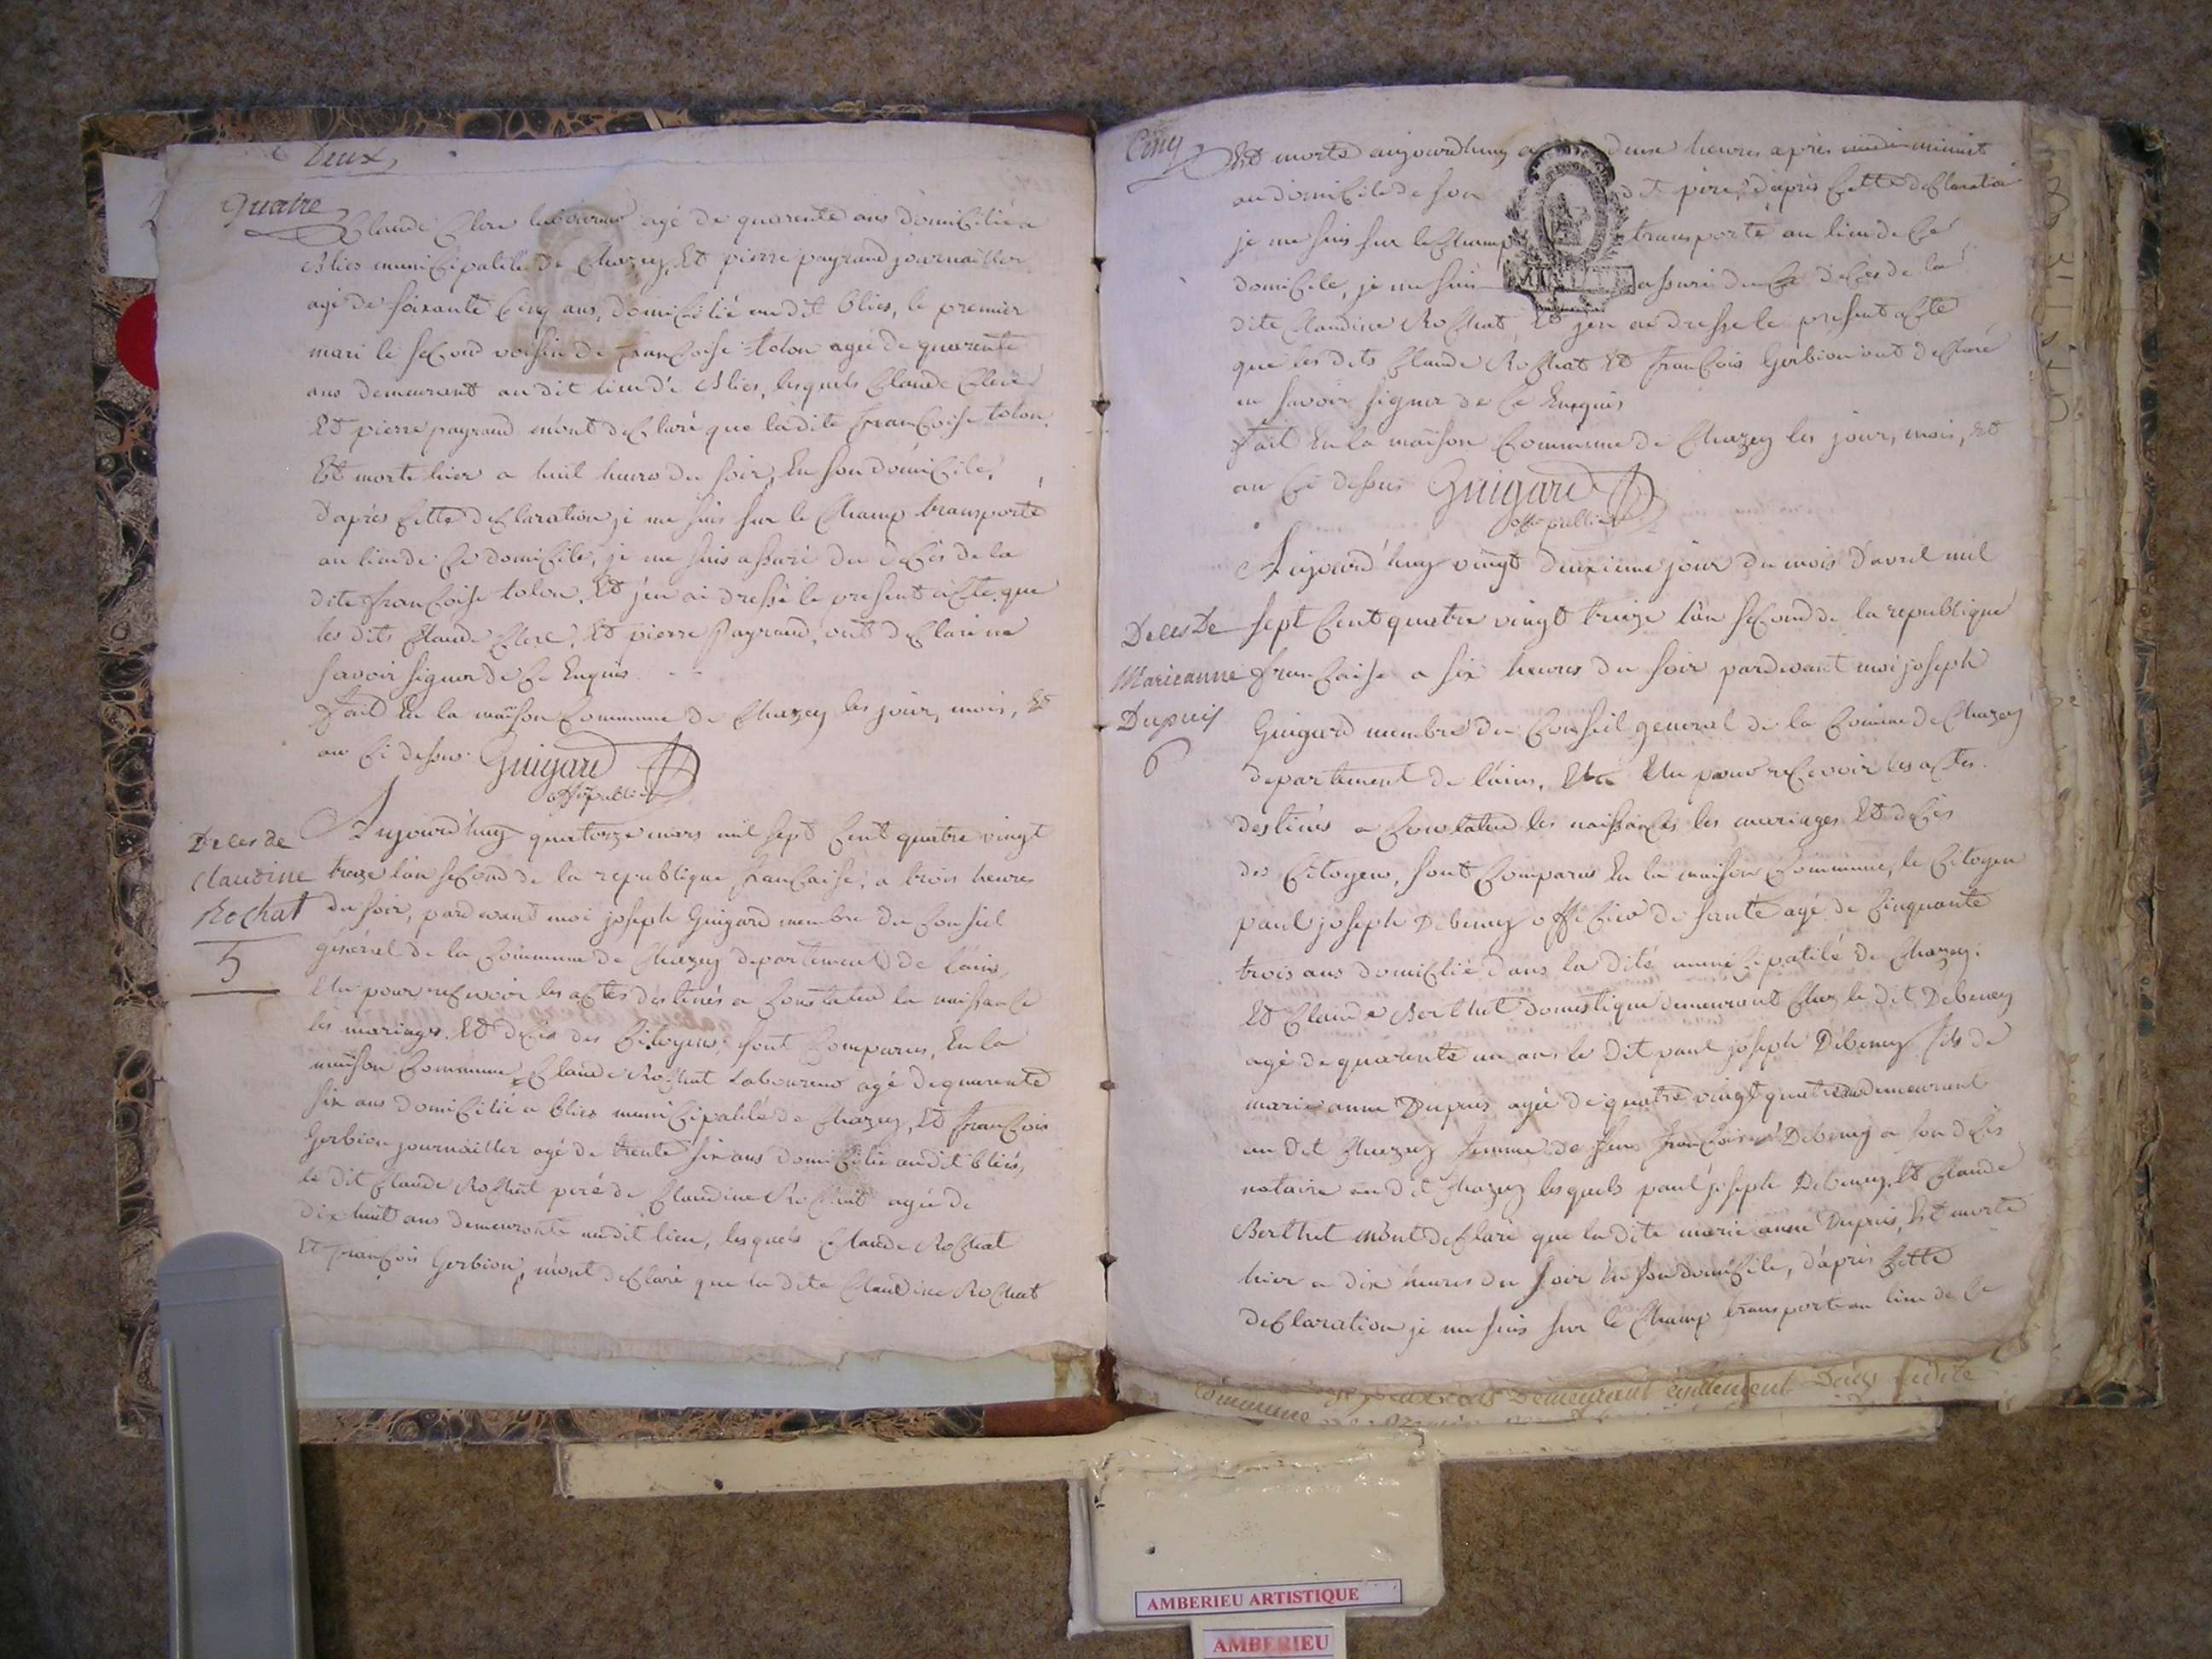 Deux
quatre
Claude Clerc laboureur agé de quarente ans domicilié a
blies municipalité de Chazey, Et pierre payraud journallier
agé de soixante Cinq ans, domicilié au dit blies, le premier
mari le second voisin de francoise tolon agée de quarente
ans demeurant au dit lieu de blies, lesquels Claude Clerc
Et pierre payraud m'ont declaré que ladite francoise tolon
Est morte hier a huit heures du soir, En son domicile,
d'après Cette declaration je me suis sur le Champ transporté
au lieu de Ce domicile, je me suis assuré du decès de la
dite francoise tolon, Et j'en ai dressé le present acte que
les dits Claude Clerc, Et pierre Payraud, ont declaré ne
savoir signer de Ce Enquis. - -
fait En la maison Commune de Chazey les jour, mois, Et
an Ci dessus. Guigard
off. public
Deces de
Claudine
Rochat
5
Aujourd'huy quatorze mars mil sept Cent quatre vingt
treize l'an second de la republique francaise, a trois heures
du soir, pardevant moi joseph Guigard membre du Conseil
général de la Commune de Chazey departement de l'ain,
Elu pour recevoir les actes destinés a Constater la naissance
les mariages Et decès des Citoyens, sont Comparus, En la
maison Commune, Claude Rochat Laboureur agé de quarente
six ans domicilié a blies municipalité de Chazey, Et francois
Gerbion journallier agé de trente six ans domicilié audit blies,
le dit Claude Rochat peré de Claudine Rochat agée de
dix huit ans demeurante audit lieu, lesquels Claude Rochat
Et francois Gerbion, m'ont declaré que la dite Claudine Rochat
Cinq
Est morte aujourdhuy a deux heures après minuit
au domicile de son dit pere, d'après Cette declaration
je me suis sur le Champ transporté au lieu de Ce
domicile, je me suis assuré du decès de la
dite Claudine Rochat, Et j'en ai dressé le present acte
que les dits Claude Rochat Et francois Gerbion ont declaré
ne savoir signer de Ce Enquis
fait En la maison Commune de Chazey les jour, mois, Et
an Ci dessus Guigard
off. public
Deces De
Marieanne
Dupuis
6
Aujourd'huy vingt deuxieme jour du mois d'avril mil
sept Cent quatre vingt treize l'an second de la republique
francaise a six heures du soir pardevant moi joseph
Guigard membre du Conseil general de la Commune de Chazey
departement de l'ain, Elu pour recevoir les actes
destinés a Constater les naissances les mariages Et decès
des Citoyens, sont Comparus En la maison Commune, le Citoyen
paul joseph Debeney officier de santé agé de Cinquante
trois ans domicilié dans la dite municipalité de Chazey.
Et Claude Berthet domestique demeurant Chez le dit Debeney
agé de quarente un ans le dit paul joseph Debeney fils de
marie anne Dupuis agée de quatre vingt quatre ans demeurant
au dit Chazey femme de feu francois Debeney a son decès
notaire au dit Chazey lesquels paul joseph Debeney, Et Claude
Berthet m'ont declaré que la dite marie anne Dupuis, Est morte
hier a dix heures du soir En son domicile, d'après Cette
declaration je me suis sur le Champ transporté au lieu de Ce
demeurant également
AMBERIEU ARTISTIQUE
AMBERIEU